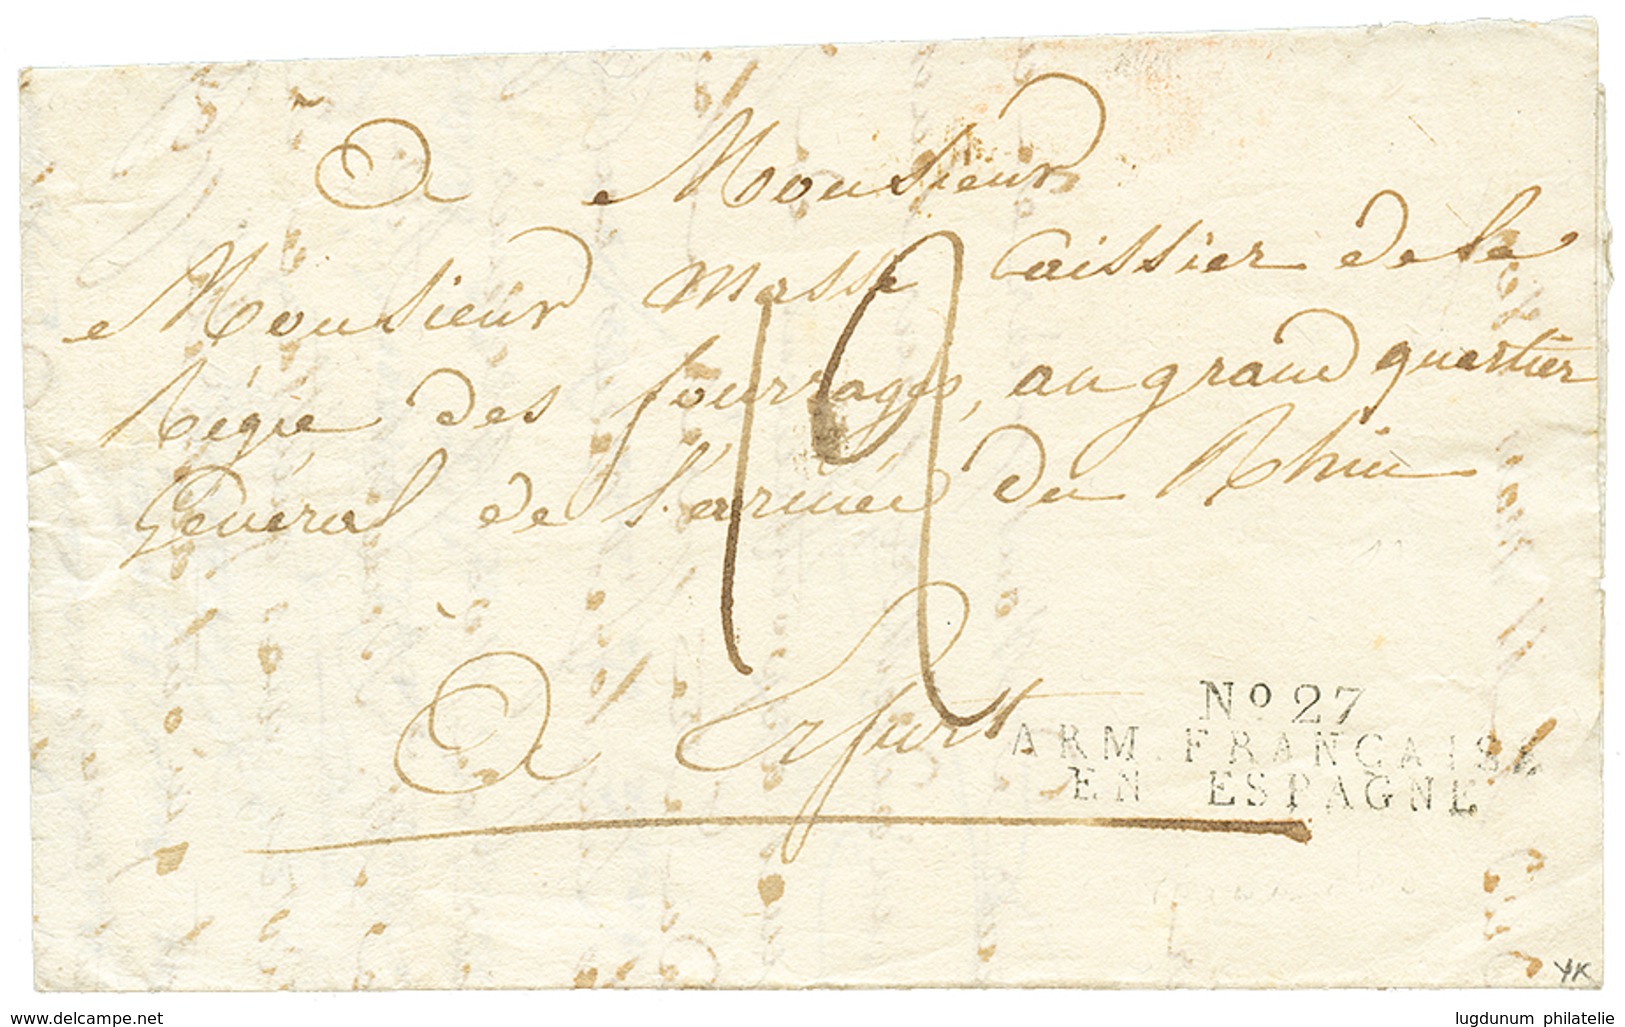 A Monsieur
Monsieur Masse Caissier de la
Régie des fourrages, au grand quartier
Général de l'armée du Rhin
à Erfurt
12
No 27
ARM. FRANÇAISE
EN ESPAGNE
YK
delcampe.net
lugdunum philatelie